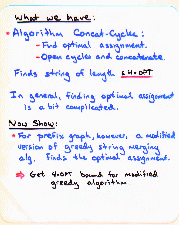 What we have:
• Algorithm Concat-Cycle:
- Find optimal assignment.
- Open cycles and concatenate.
Finds string of length ≤ 4·OPT
In general, finding optimal assignment
is a bit complicated.
Now Show:
• For prefix graph, however, a modified
version of greedy string merging
alg. finds the optimal assignment.
⇒ Get 4·OPT bound for modified
greedy algorithm